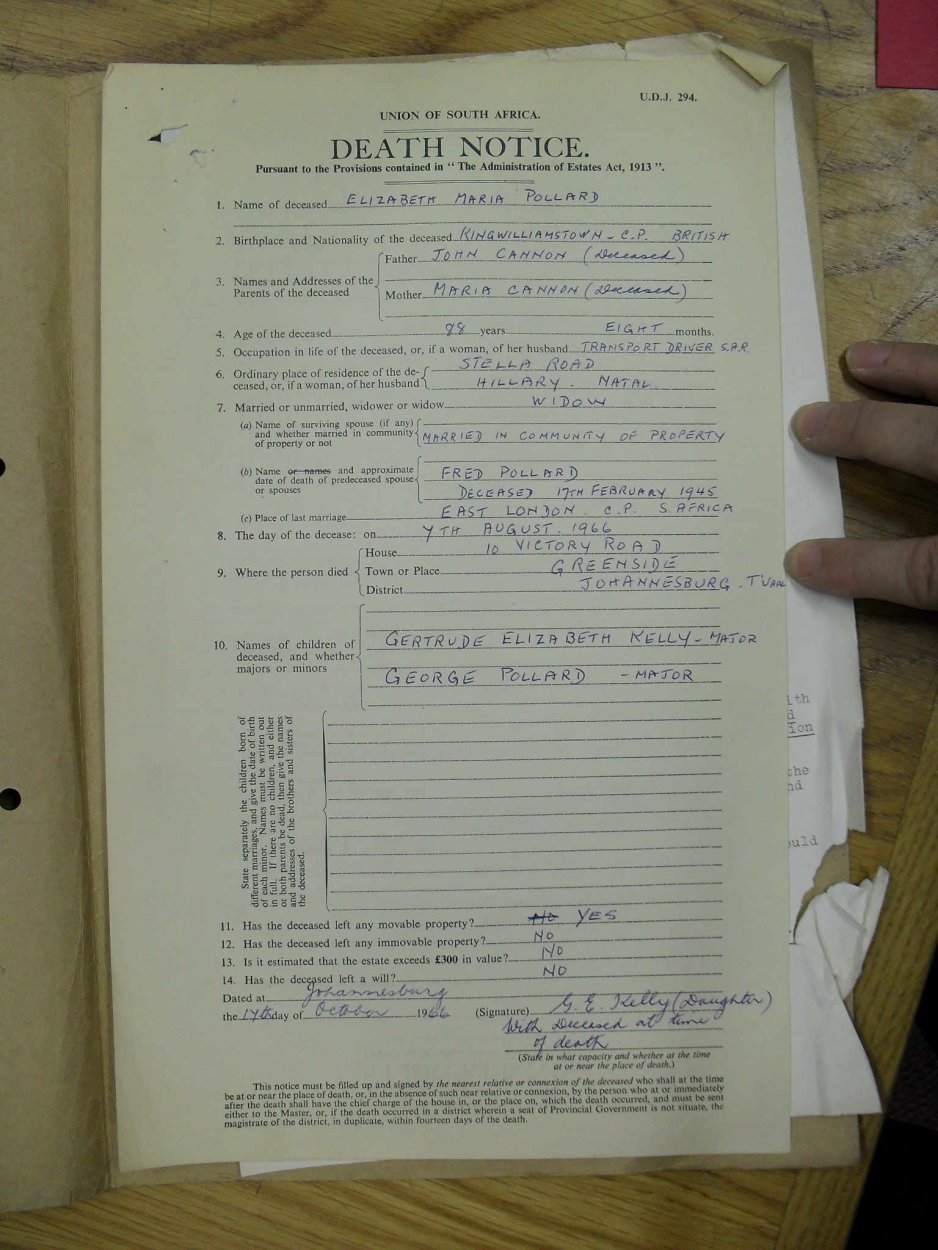 U.D.J. 294.
UNION OF SOUTH AFRICA.
DEATH NOTICE.
Pursuant to the Provisions contained in “ The Administration of Estates Act, 1913 ”.
1. Name of deceased ELIZABETH MARIA POLLARD
2. Birthplace and Nationality of the deceased KINGWILLIAMSTOWN - C.P. BRITISH
3. Names and Addresses of the Parents of the deceased
Father JOHN CANNON (Deceased)
Mother MARIA CANNON (Deceased)
4. Age of the deceased 88 years EIGHT months.
5. Occupation in life of the deceased, or, if a woman, of her husband TRANSPORT DRIVER S.A.R.
6. Ordinary place of residence of the de- STELLA ROAD
ceased, or, if a woman, of her husband HILLARY. NATAL
7. Married or unmarried, widower or widow WIDOW
(a) Name of surviving spouse (if any)
and whether married in community MARRIED IN COMMUNITY OF PROPERTY
of property or not
(b) Name or names and approximate FRED POLLARD
date of death of predeceased spouse
or spouses DECEASED 17TH FEBRUARY 1945
(c) Place of last marriage EAST LONDON C.P. S AFRICA
8. The day of the decease: on 7TH AUGUST. 1966
9. Where the person died
House 10 VICTORY ROAD
Town or Place GREENSIDE
District JOHANNESBURG. TVAAL
10. Names of children of
deceased, and whether
majors or minors
GERTRUDE ELIZABETH KELLY - MAJOR
GEORGE POLLARD - MAJOR
State separately the children born of
different marriages, and give the date of birth
of each minor. Names must be written out
in full. If there are no children, and either
or both parents be dead, then give the names
and addresses of the brothers and sisters of
the deceased.
11. Has the deceased left any movable property? No YES
12. Has the deceased left any immovable property? NO
13. Is it estimated that the estate exceeds £300 in value? NO
14. Has the deceased left a will? NO
Dated at Johannesburg
the 17th day of October 1966 (Signature) G. E. Kelly (Daughter)
With Deceased at time
of death
(State in what capacity and whether at the time
at or near the place of death.)
This notice must be filled up and signed by the nearest relative or connexion of the deceased who shall at the time
be at or near the place of death, or, in the absence of such near relative or connexion, by the person who at or immediately
after the death shall have the chief charge of the house in, or the place on, which the death occurred, and must be sent
either to the Master, or, if the death occurred in a district wherein a seat of Provincial Government is not situate, the
magistrate of the district, in duplicate, within fourteen days of the death.